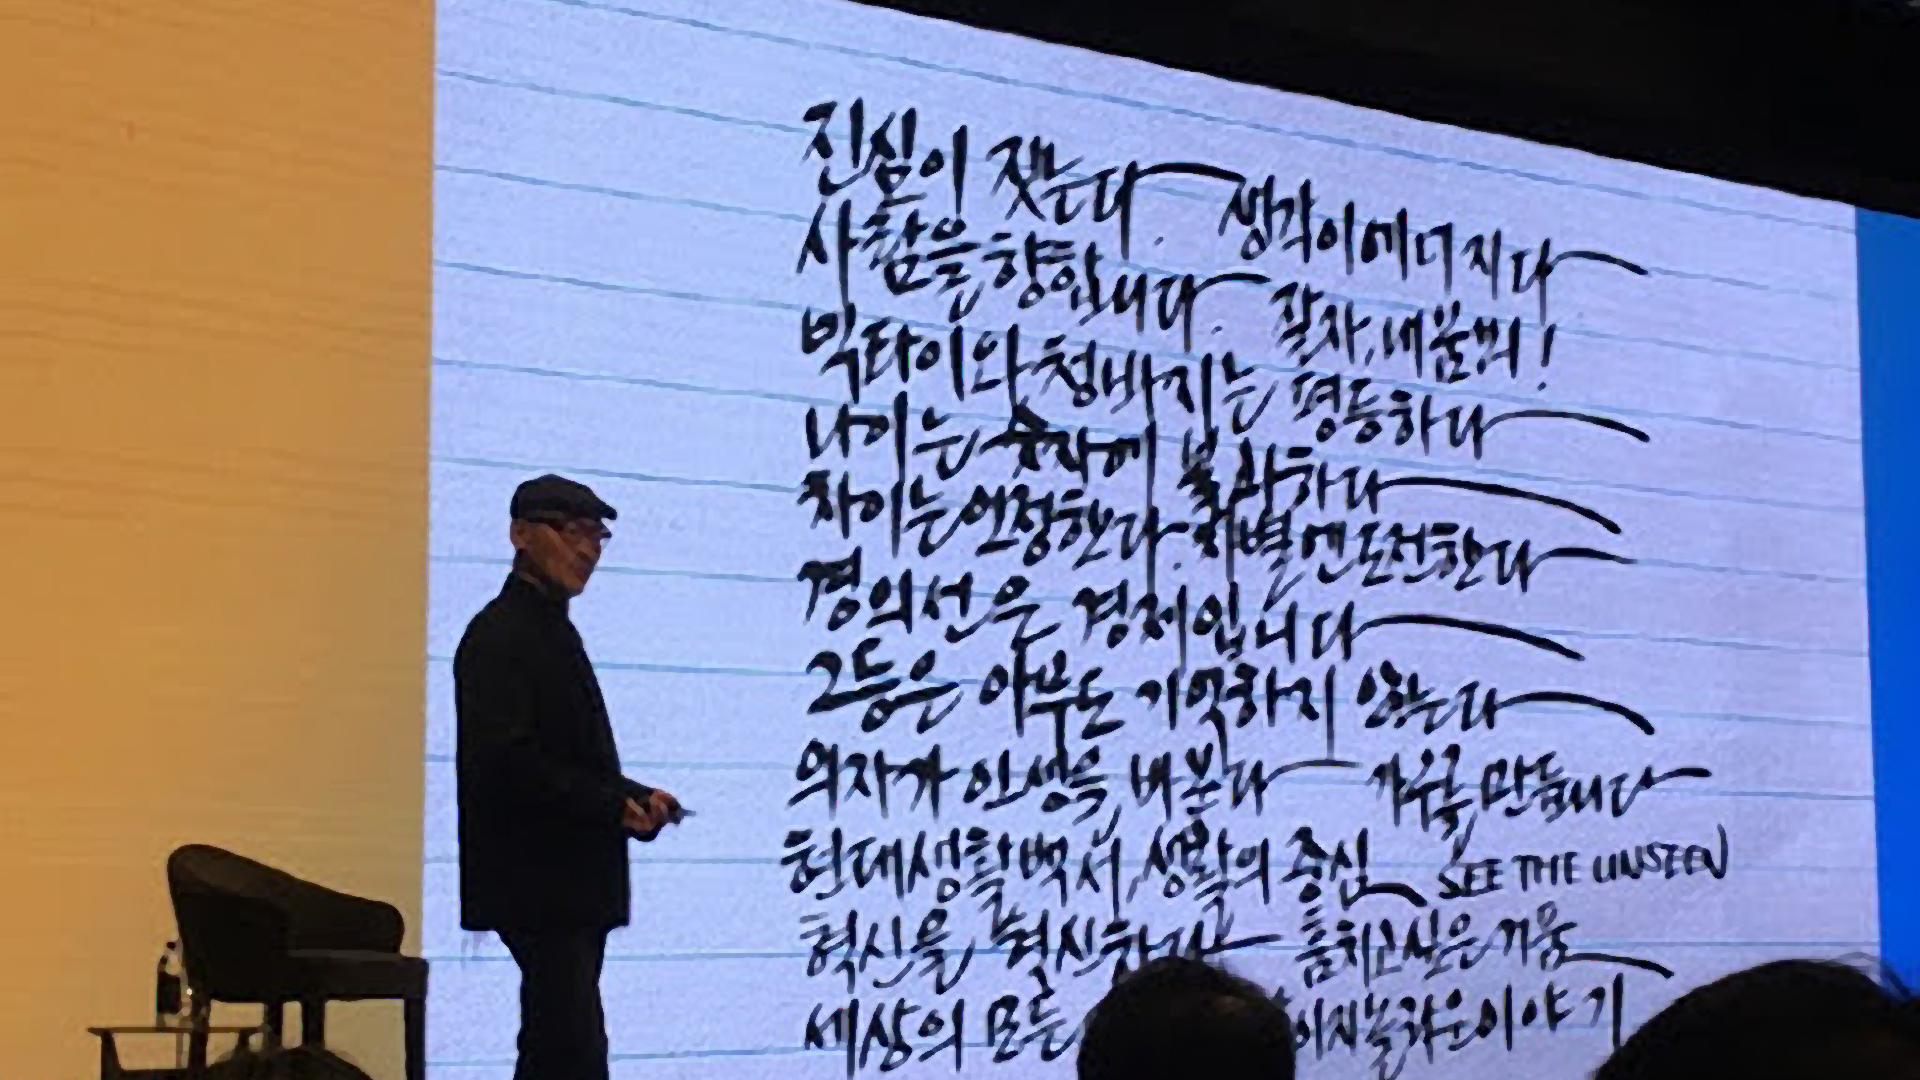 진심이 짓는다. 생각이 에너지다
사람을 향합니다. 잘자, 내 꿈꿔!
넥타이와 청바지는 평등하다
나이는 숫자에 불과하다
차이는 인정한다. 차별엔 도전한다
경의선은 경제입니다
2등은 아무도 기억하지 않는다
의자가 인생을 바꾼다 만듭니다
현대생활백서, 생활의 중심 SEE THE UNSEEN
혁신을 혁신하다 훔치고 싶은
세상의 모든 놀라운 이야기